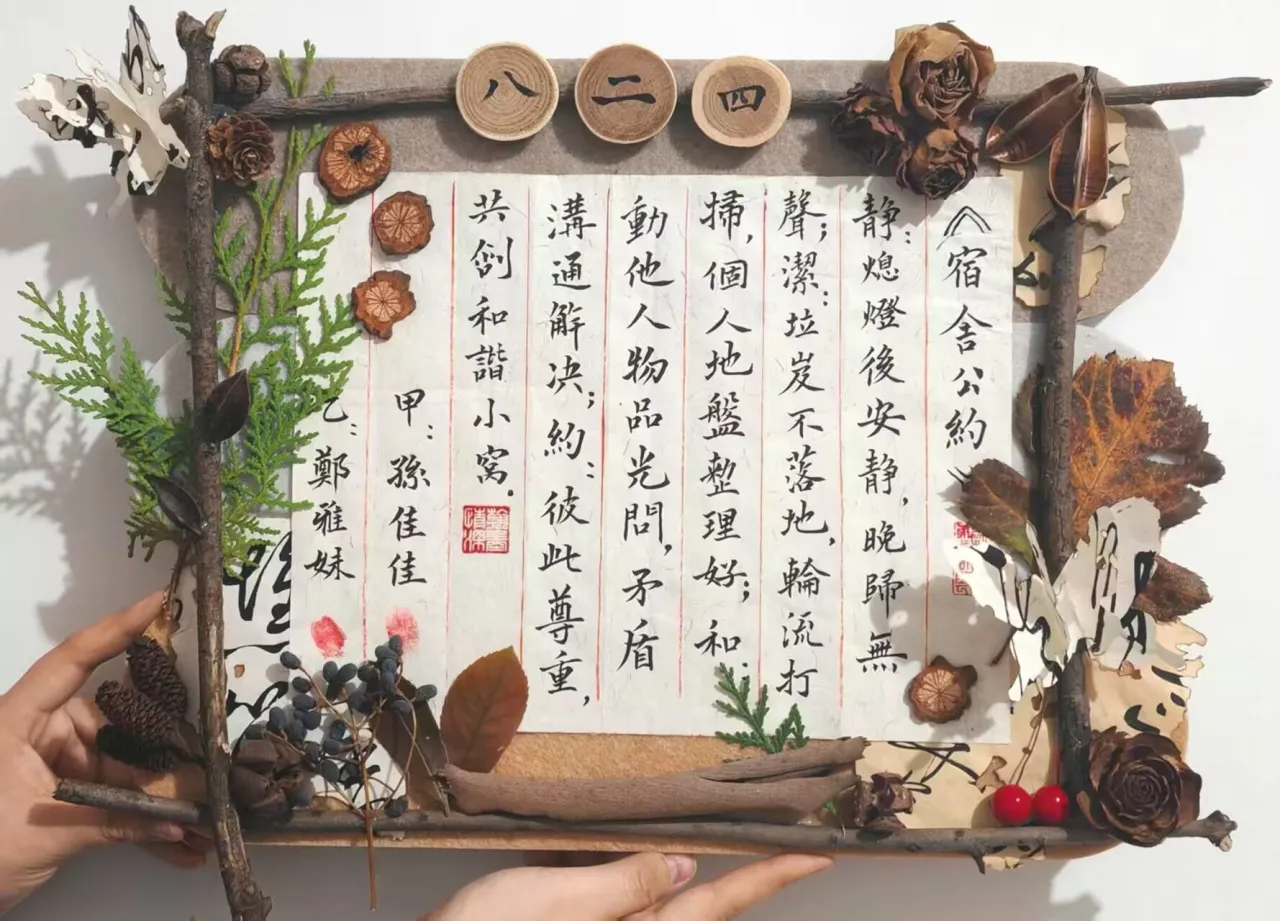 八二四
《宿舍公約》
静：熄燈後安静，晚歸無
聲；潔：垃岌不落地，輪流打
掃，個人地盤整理好；和：
動他人物品光問，矛盾
溝通解决；約：彼此尊重，
共創和諧小窝。
翰墨情深
甲：孫佳佳
乙：鄭雅妹